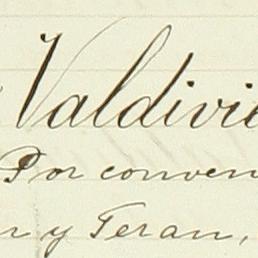 Valdivie
Por conven
r y Teran,